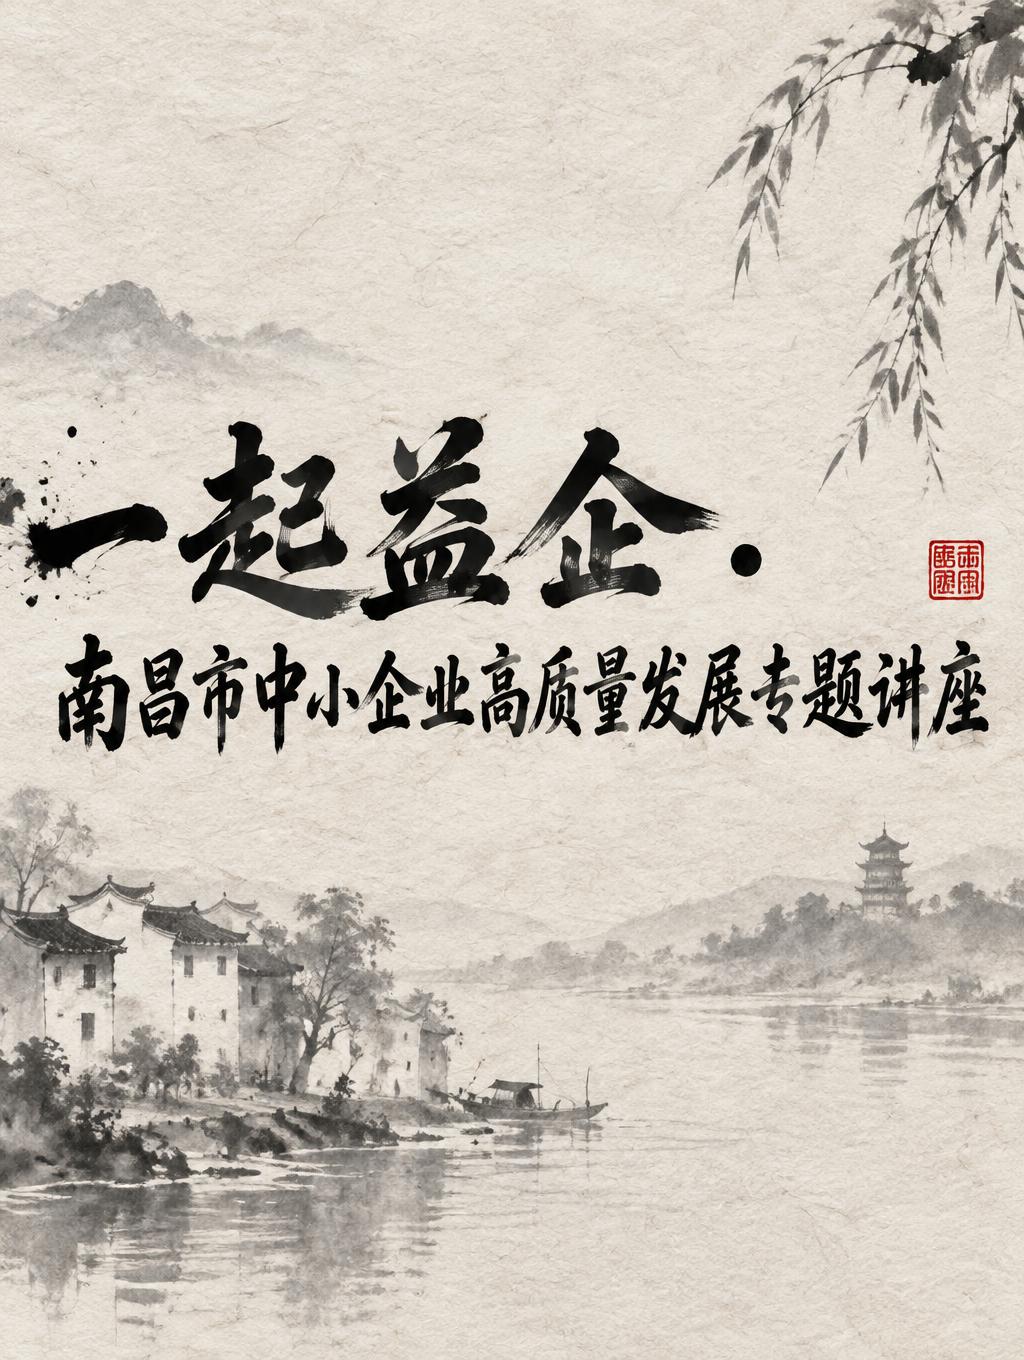 一起益企·
南昌市中小企业高质量发展专题讲座